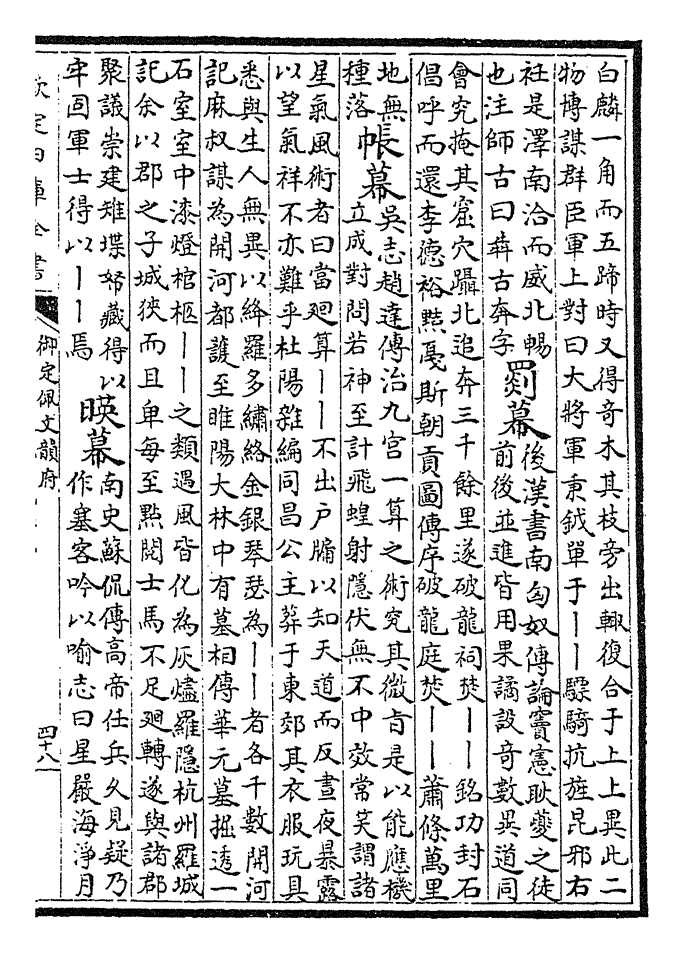 白麟一角而五蹄時又得奇木其枝旁出輒復合于上上異此二
物博謀群臣軍上對曰大將軍秉鉞單于——驃騎抗旌昆邪右
衽是澤南洽而威北暢
也注師古曰犇古奔字
罽幕
後漢書南匈奴傳論竇憲耿夔之徒
前後並進皆用果譎設奇數異道同
會究掩其窟穴躡北追奔三千餘里遂破龍祠焚——銘功封石
倡呼而還李德裕黠戛斯朝貢圖傳序破龍庭焚——蕭條萬里
地無
種落
帳幕
吳志趙達傳治九宮一算之術究其微旨是以能應機
立成對問若神至計飛蝗射隱伏無不中效常笑謂諸
星氣風術者曰當迴算——不出戶牖以知天道而反晝夜暴露
以望氣祥不亦難乎杜陽雜編同昌公主葬于東郊其衣服玩具
悉與生人無異以絳羅多繡絡金銀琴瑟為——者各千數開河
記麻叔謀為開河都護至睢陽大林中有墓相傳華元墓掘透一
石室室中漆燈棺柩——之類遇風皆化為灰燼羅隱杭州羅城
記余以郡之子城狹而且卑每至點閱士馬不足迴轉遂與諸郡
聚議崇建雉堞帑藏得以
牢固軍士得以——焉
暎幕
南史蘇侃傳高帝任兵久見疑乃
作塞客吟以喻志曰星嚴海淨月
欽定四庫全書
御定佩文韻府
四十八